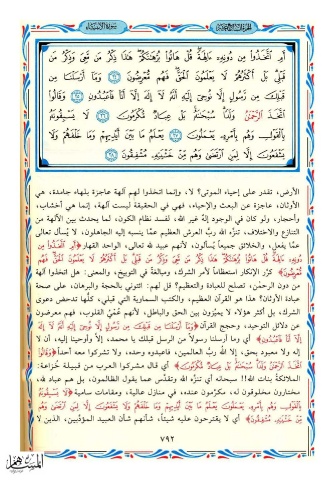 الجزء السابع عشر
سورة الأنبياء
أَمِ اتَّخَذُوا مِن دُونِهِ آلِهَةً قُلْ هَاتُوا بُرْهَانَكُمْ هَذَا ذِكْرُ مَن مَّعِيَ وَذِكْرُ مَن
قَبْلِي بَلْ أَكْثَرُهُمْ لَا يَعْلَمُونَ الْحَقَّ فَهُم مُّعْرِضُونَ ﴿٢٤﴾ وَمَا أَرْسَلْنَا مِن
قَبْلِكَ مِن رَّسُولٍ إِلَّا نُوحِي إِلَيْهِ أَنَّهُ لَا إِلَهَ إِلَّا أَنَا فَاعْبُدُونِ ﴿٢٥﴾ وَقَالُوا
اتَّخَذَ الرَّحْمَنُ وَلَدًا سُبْحَانَهُ بَلْ عِبَادٌ مُّكْرَمُونَ ﴿٢٦﴾ لَا يَسْبِقُونَهُ
بِالْقَوْلِ وَهُم بِأَمْرِهِ يَعْمَلُونَ ﴿٢٧﴾ يَعْلَمُ مَا بَيْنَ أَيْدِيهِمْ وَمَا خَلْفَهُمْ وَلَا
يَشْفَعُونَ إِلَّا لِمَنِ ارْتَضَى وَهُم مِّنْ خَشْيَتِهِ مُشْفِقُونَ ﴿٢٨﴾
الأرض، تقدر على إحياء الموتى؟ لا، وإنما اتخذوا لهم آلهة عاجزة بلهاء جامدة، هي
الأوثان، عاجزة عن البعث والإحياء، فهي في الحقيقة ليست آلهة، إنما هي أخشاب،
وأحجار، ولو كان في الوجود إلهٌ غير الله، لفسد نظام الكون، لما يحدث بين الآلهة من
التنازع والاختلاف، تنزَّه الله ربُّ العرش العظيم عمَّا ينسبه إليه الجاهلون، لا يُسأل تعالى
عمَّا يفعل، والخلائق جميعاً يُسألون، لأنهم عبيد لله تعالى، الواحد القهار ﴿أَمِ اتَّخَذُوا مِن
دُونِهِ آلِهَةً قُلْ هَاتُوا بُرْهَانَكُمْ هَذَا ذِكْرُ مَن مَّعِيَ وَذِكْرُ مَن قَبْلِي بَلْ أَكْثَرُهُمْ لَا يَعْلَمُونَ الْحَقَّ فَهُم
مُّعْرِضُونَ﴾ كرَّر الإنكار استعظاماً لأمر الشرك، ومبالغةً في التوبيخ، والمعنى: هل اتخذوا آلهة
من دون الرحمٰن، تصلح للعبادة والتعظيم؟ قل لهم: ائتوني بالحجة والبرهان، على صحة
عبادة الأوثان؟ هذا هو القرآن العظيم، والكتب السماوية التي قبلي، كلُّها تدحض دعوى
الشرك، بل أكثر هؤلاء لا يميّزون بين الحق والباطل، لأنهم عُمْيُ القلوب، فهم معرضون
عن دلائل التوحيد، وحجج القرآن ﴿وَمَا أَرْسَلْنَا مِن قَبْلِكَ مِن رَّسُولٍ إِلَّا نُوحِي إِلَيْهِ أَنَّهُ لَا إِلَهَ إِلَّا
أَنَا فَاعْبُدُونِ﴾ أي وما أرسلنا رسولاً من الرسل قبلك يا محمد، إلاَّ وأوحينا إليه، أن لا
إله ولا معبود بحق، إلا الله ربُّ العالمين، فاعبدوه وحده، ولا تشركوا معه أحداً ﴿وَقَالُوا
اتَّخَذَ الرَّحْمَنُ وَلَدًا سُبْحَانَهُ بَلْ عِبَادٌ مُّكْرَمُونَ﴾ أي قال مشركوا العرب من قبيلة خُزاعة:
الملائكةُ بناتُ الله!! سبحانه أي تنزَّه الله وتقدَّس عما يقول الظالمون، بل هم عباد لله،
مختارون مخلوقون له، مكرَّمون عنده، في منازل عالية، ومقامات سامية ﴿لَا يَسْبِقُونَهُ
بِالْقَوْلِ وَهُم بِأَمْرِهِ يَعْمَلُونَ يَعْلَمُ مَا بَيْنَ أَيْدِيهِمْ وَمَا خَلْفَهُمْ وَلَا يَشْفَعُونَ إِلَّا لِمَنِ ارْتَضَى وَهُم
مِّنْ خَشْيَتِهِ مُشْفِقُونَ﴾ أي لا يقترحون عليه شيئاً، شأنهم شأن العبيد المؤدَّبين، الذين لا
٧٩٢